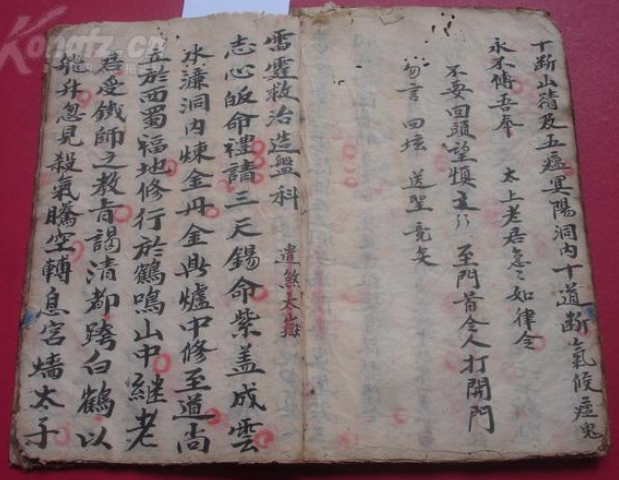 十断山精及五瘟冥陽洞内十道断氣候瘟鬼
永不傳吾奉 太上老君急〻如律令
不要回頭望慎之〻 至門首令人打開門
勿言 回壇 送聖竟矣
雷霆救治造盤科 遣煞大獄
志心皈命禮諸三天錫命紫盖成雲
水濂洞内煉金丹金㒷爐中修至道尚
並於西蜀福地修行於鶴鳴山中継老
君受鐵師之教旨謁清都跨白鶴以
飛升忽見殺氣騰空轉息宮墻太子
Kongfz.cn